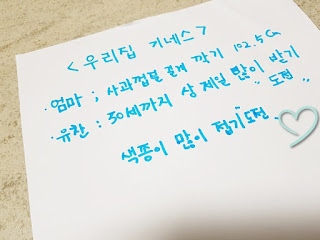 <우리집 기네스>
·엄마 ; 사과껍질 길게 깍기 102.5cm
·유찬 : 30세까지 상 제일 많이 받기
" 도전 "
색종이 많이 접기"도전"